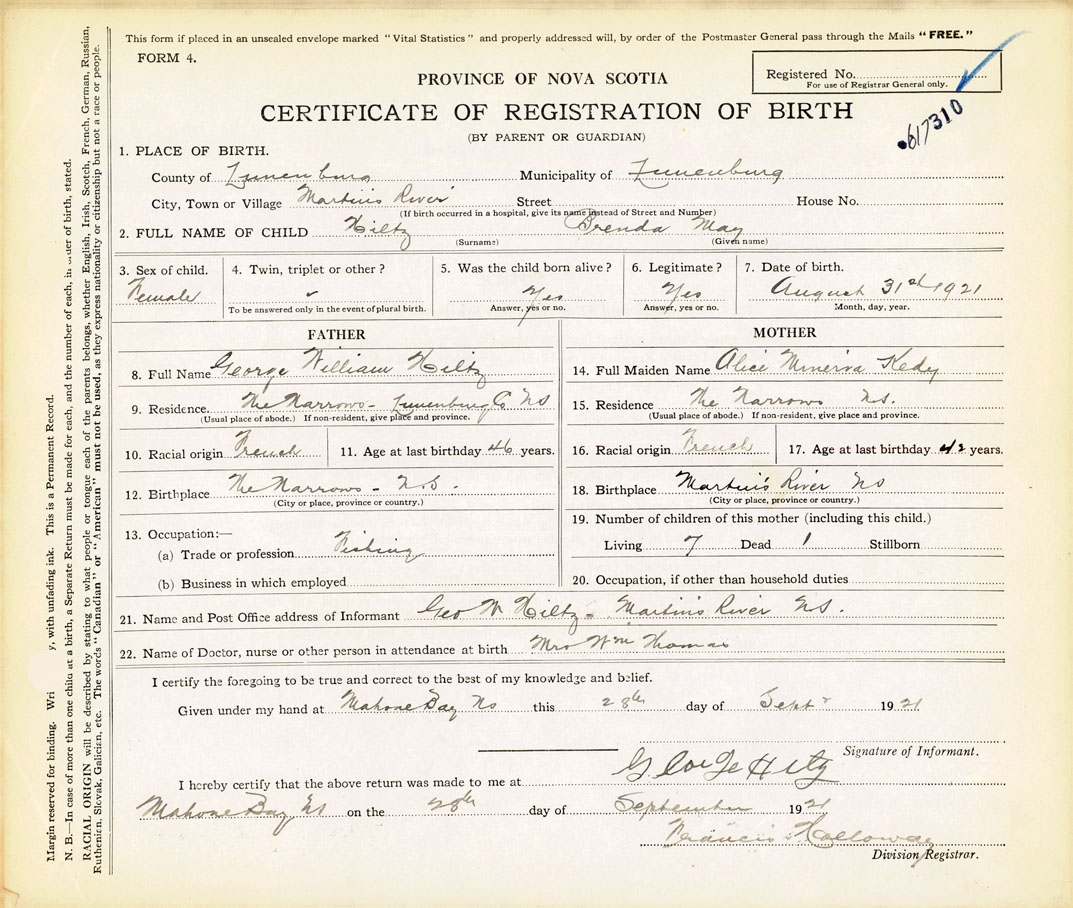 This form if placed in an unsealed envelope marked "Vital Statistics" and properly addressed will, by order of the Postmaster General pass through the Mails "FREE."
FORM 4.
Registered No.
For use of Registrar General only.
PROVINCE OF NOVA SCOTIA
CERTIFICATE OF REGISTRATION OF BIRTH
617310
(BY PARENT OR GUARDIAN)
1. PLACE OF BIRTH.
County of Lunenburg Municipality of Lunenburg
City, Town or Village Martin's River Street House No.
(If birth occurred in a hospital, give its name instead of Street and Number)
2. FULL NAME OF CHILD Hiltz Brenda May
(Surname) (Given name)
3. Sex of child. 4. Twin, triplet or other? 5. Was the child born alive? 6. Legitimate? 7. Date of birth.
Female Yes Yes August 31st 1921
To be answered only in the event of plural birth. Answer, yes or no. Answer, yes or no. Month, day, year.
FATHER
8. Full Name George William Hiltz
9. Residence. The Narrows - Lunenburg Co NS
(Usual place of abode.) If non-resident, give place and province.
10. Racial origin French 11. Age at last birthday 46 years.
12. Birthplace The Narrows - N.S.
(City or place, province or country.)
13. Occupation:—
(a) Trade or profession Fishing
(b) Business in which employed
MOTHER
14. Full Maiden Name Alice Minerva Kedy
15. Residence The Narrows N.S.
(Usual place of abode.) If non-resident, give place and province.
16. Racial origin French 17. Age at last birthday 42 years.
18. Birthplace Martin's River NS
(City or place, province or country.)
19. Number of children of this mother (including this child.)
Living 7 Dead 1 Stillborn
20. Occupation, if other than household duties
21. Name and Post Office address of Informant Geo W Hiltz - Martin's River NS.
22. Name of Doctor, nurse or other person in attendance at birth Mrs Wm Thomas
I certify the foregoing to be true and correct to the best of my knowledge and belief.
Given under my hand at Mahone Bay NS this 28th day of Sept 1921
Signature of Informant.
I hereby certify that the above return was made to me at George Hiltz
Mahone Bay NS on the 28th day of September 1921
Francis Holloway
Division Registrar.
Margin reserved for binding. Wri y, with unfading ink. This is a Permanent Record.
N. B.—In case of more than one child at a birth, a Separate Return must be made for each, and the number of each, in order of birth, stated.
RACIAL ORIGIN will be described by stating to what people or tongue each of the parents belongs, whether English, Irish, Scotch, French, German, Russian,
Ruthenian, Slovak, Galician, etc. The words "Canadian" or "American" must not be used, as they express nationality or citizenship but not a race or people.